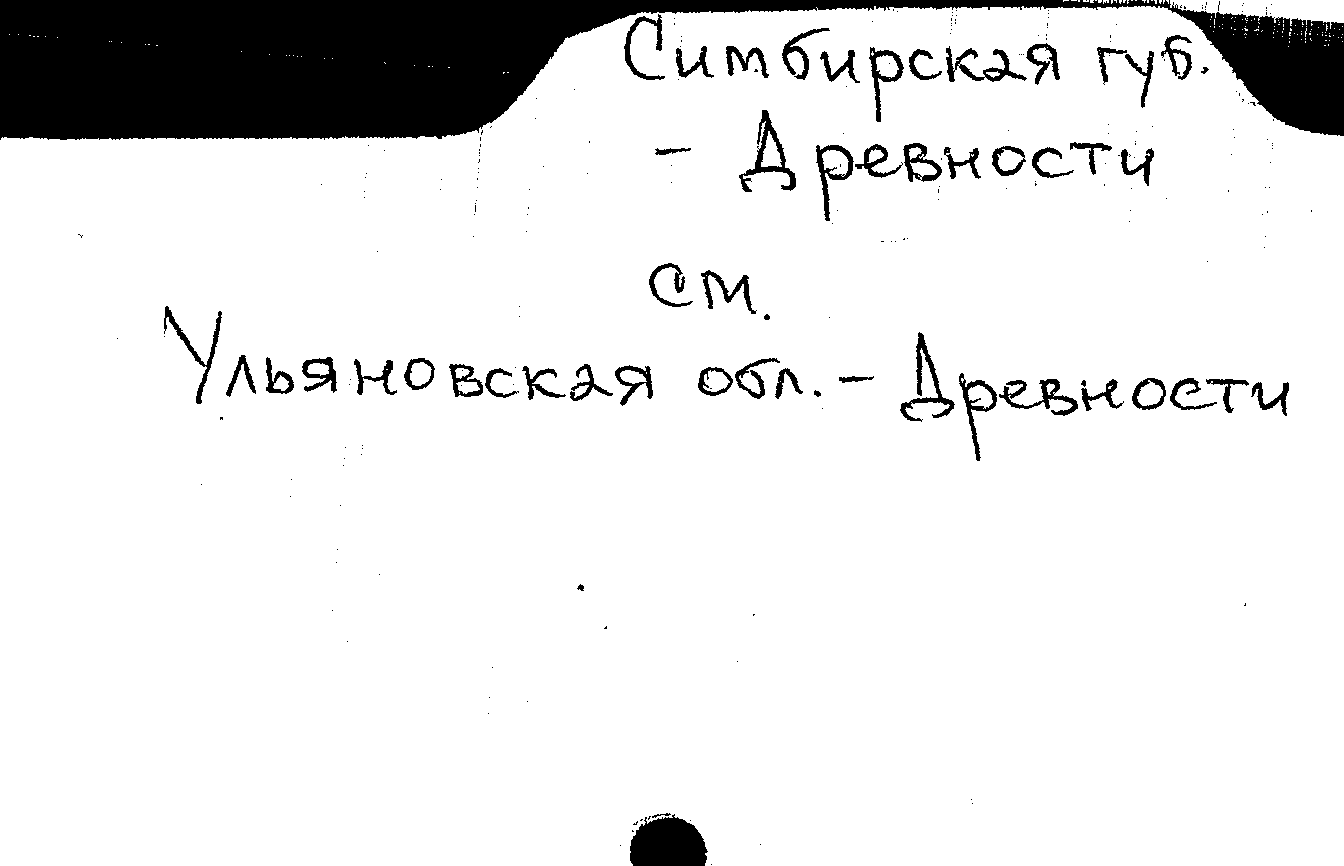 Симбирская губ.
- Древности
см.
Ульяновская обл. - Древности